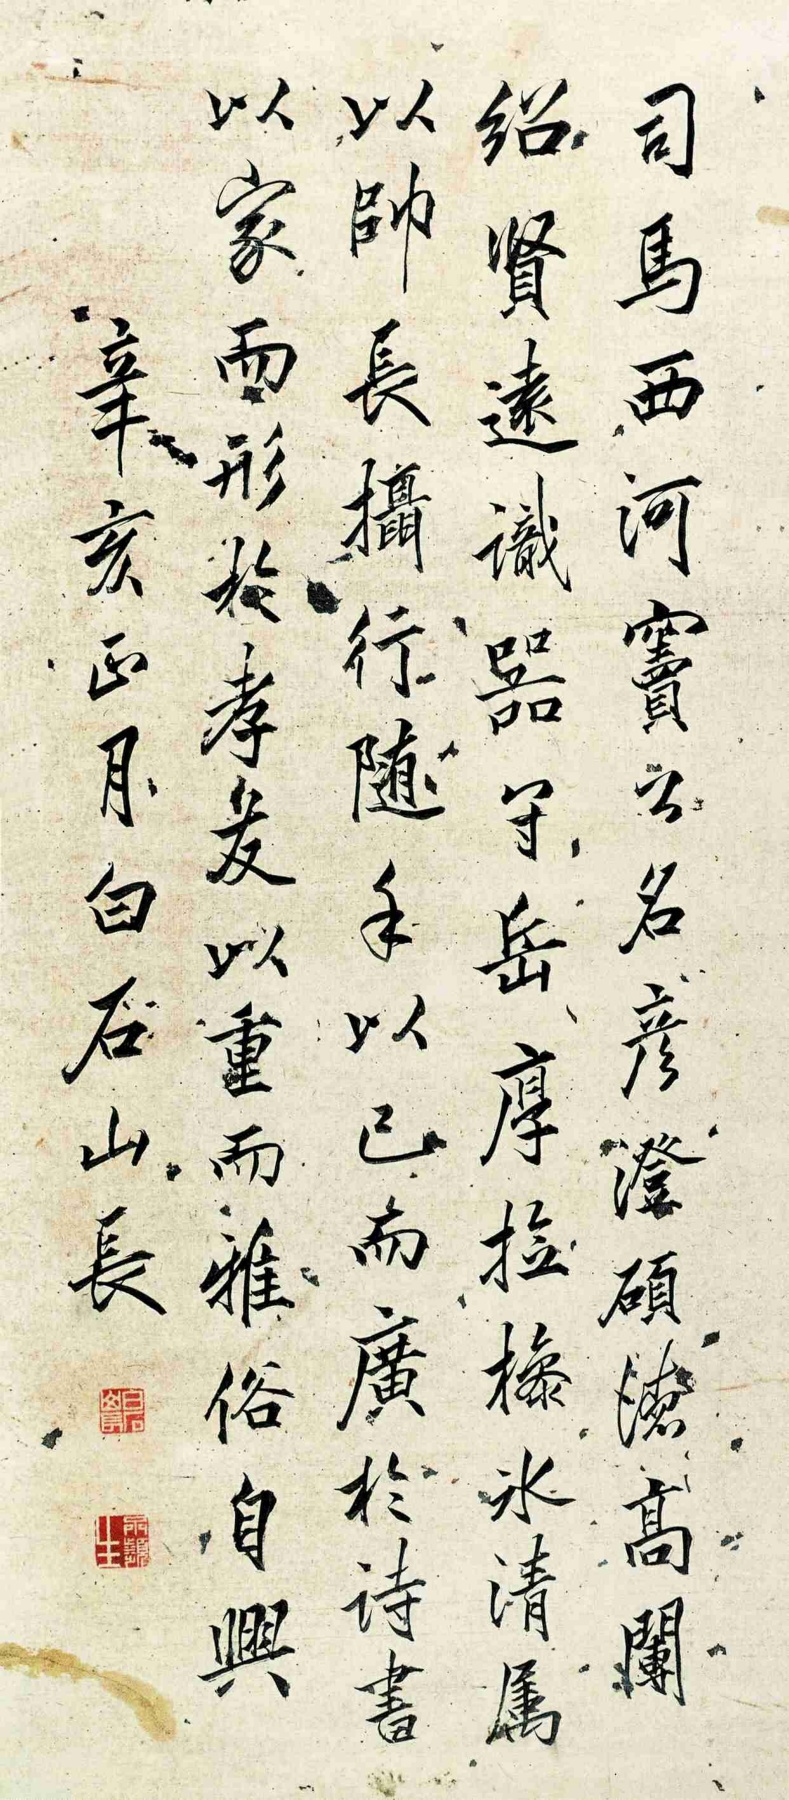 司馬西河竇公名彦澄碩德高闌
紹賢遠識器守岳厚撿操冰清属
以帥長攝行随手以己而廣於詩書
以家而形於孝友以重而雅俗自興
辛亥正月白石山長